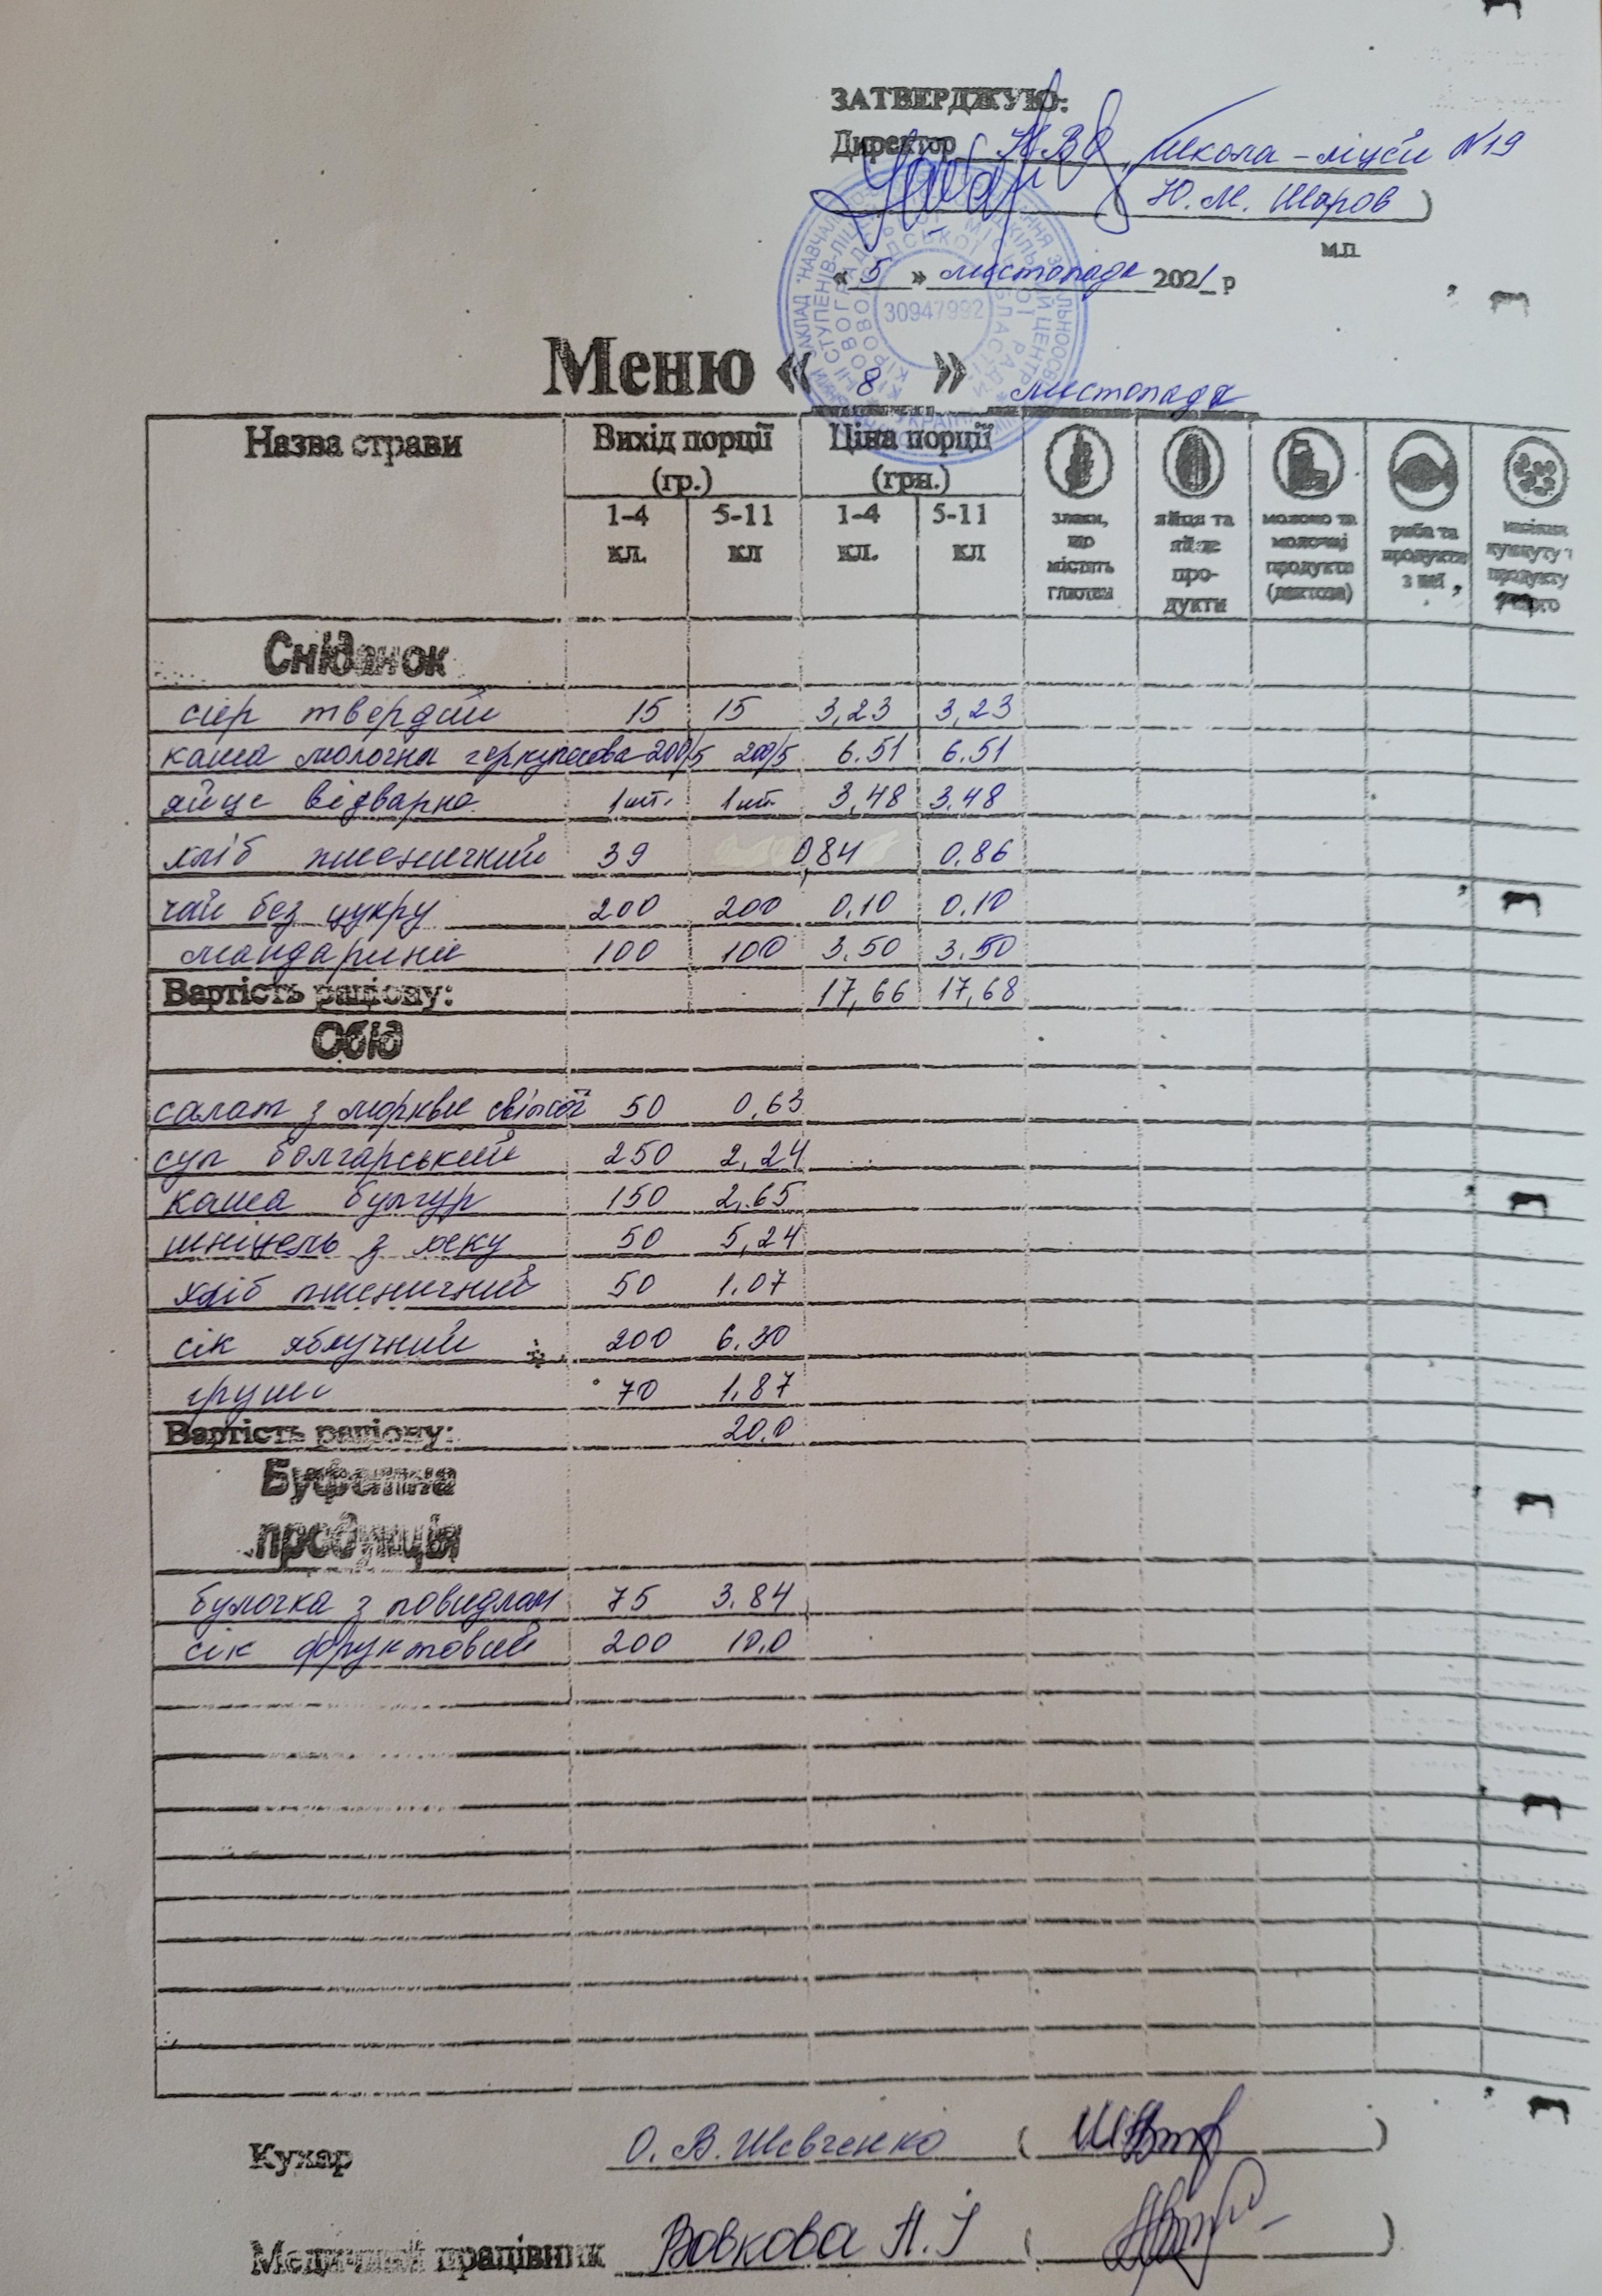 ЗАТВЕРДЖУЮ:
Директор НВО „Школа-ліцей N19
( Ю. М. Шаров )
м.п.
« 5 » листопада 2021 р
30947992
Меню « 8 » листопада
Назва страви Вихід порції (гр.) Ціна порції (грн.)
1-4 кл. 5-11 кл 1-4 кл. 5-11 кл
злаки, що містять глютен
яйця та яйце продукти
молоко та молочні продукти (лактоза)
риба та продукти з неї
Сніданок
сир твердий 15 15 3,23 3,23
каша молочна геркулесова 200/5 200/5 6.51 6.51
яйце відварне 1шт. 1шт. 3,48 3.48
хліб пшеничний 39 084 0.86
чай без цукру 200 200 0.10 0.10
мандарини 100 100 3.50 3.50
Вартість раціону: 17,66 17,68
Обід
салат з моркви свіжої 50 0,63
суп болгарський 250 2,24
каша булгур 150 2.65
шніцель з хеку 50 5,24
хліб пшеничний 50 1.07
сік яблучний 200 6.30
груші 70 1.87
Вартість раціону: 20.0
Буфетна
продукція
булочка з повидлом 75 3.84
сік фруктовий 200 10.0
Кухар О. В. Шевченко ( )
Медичний працівник Вовкова Л. І ( )